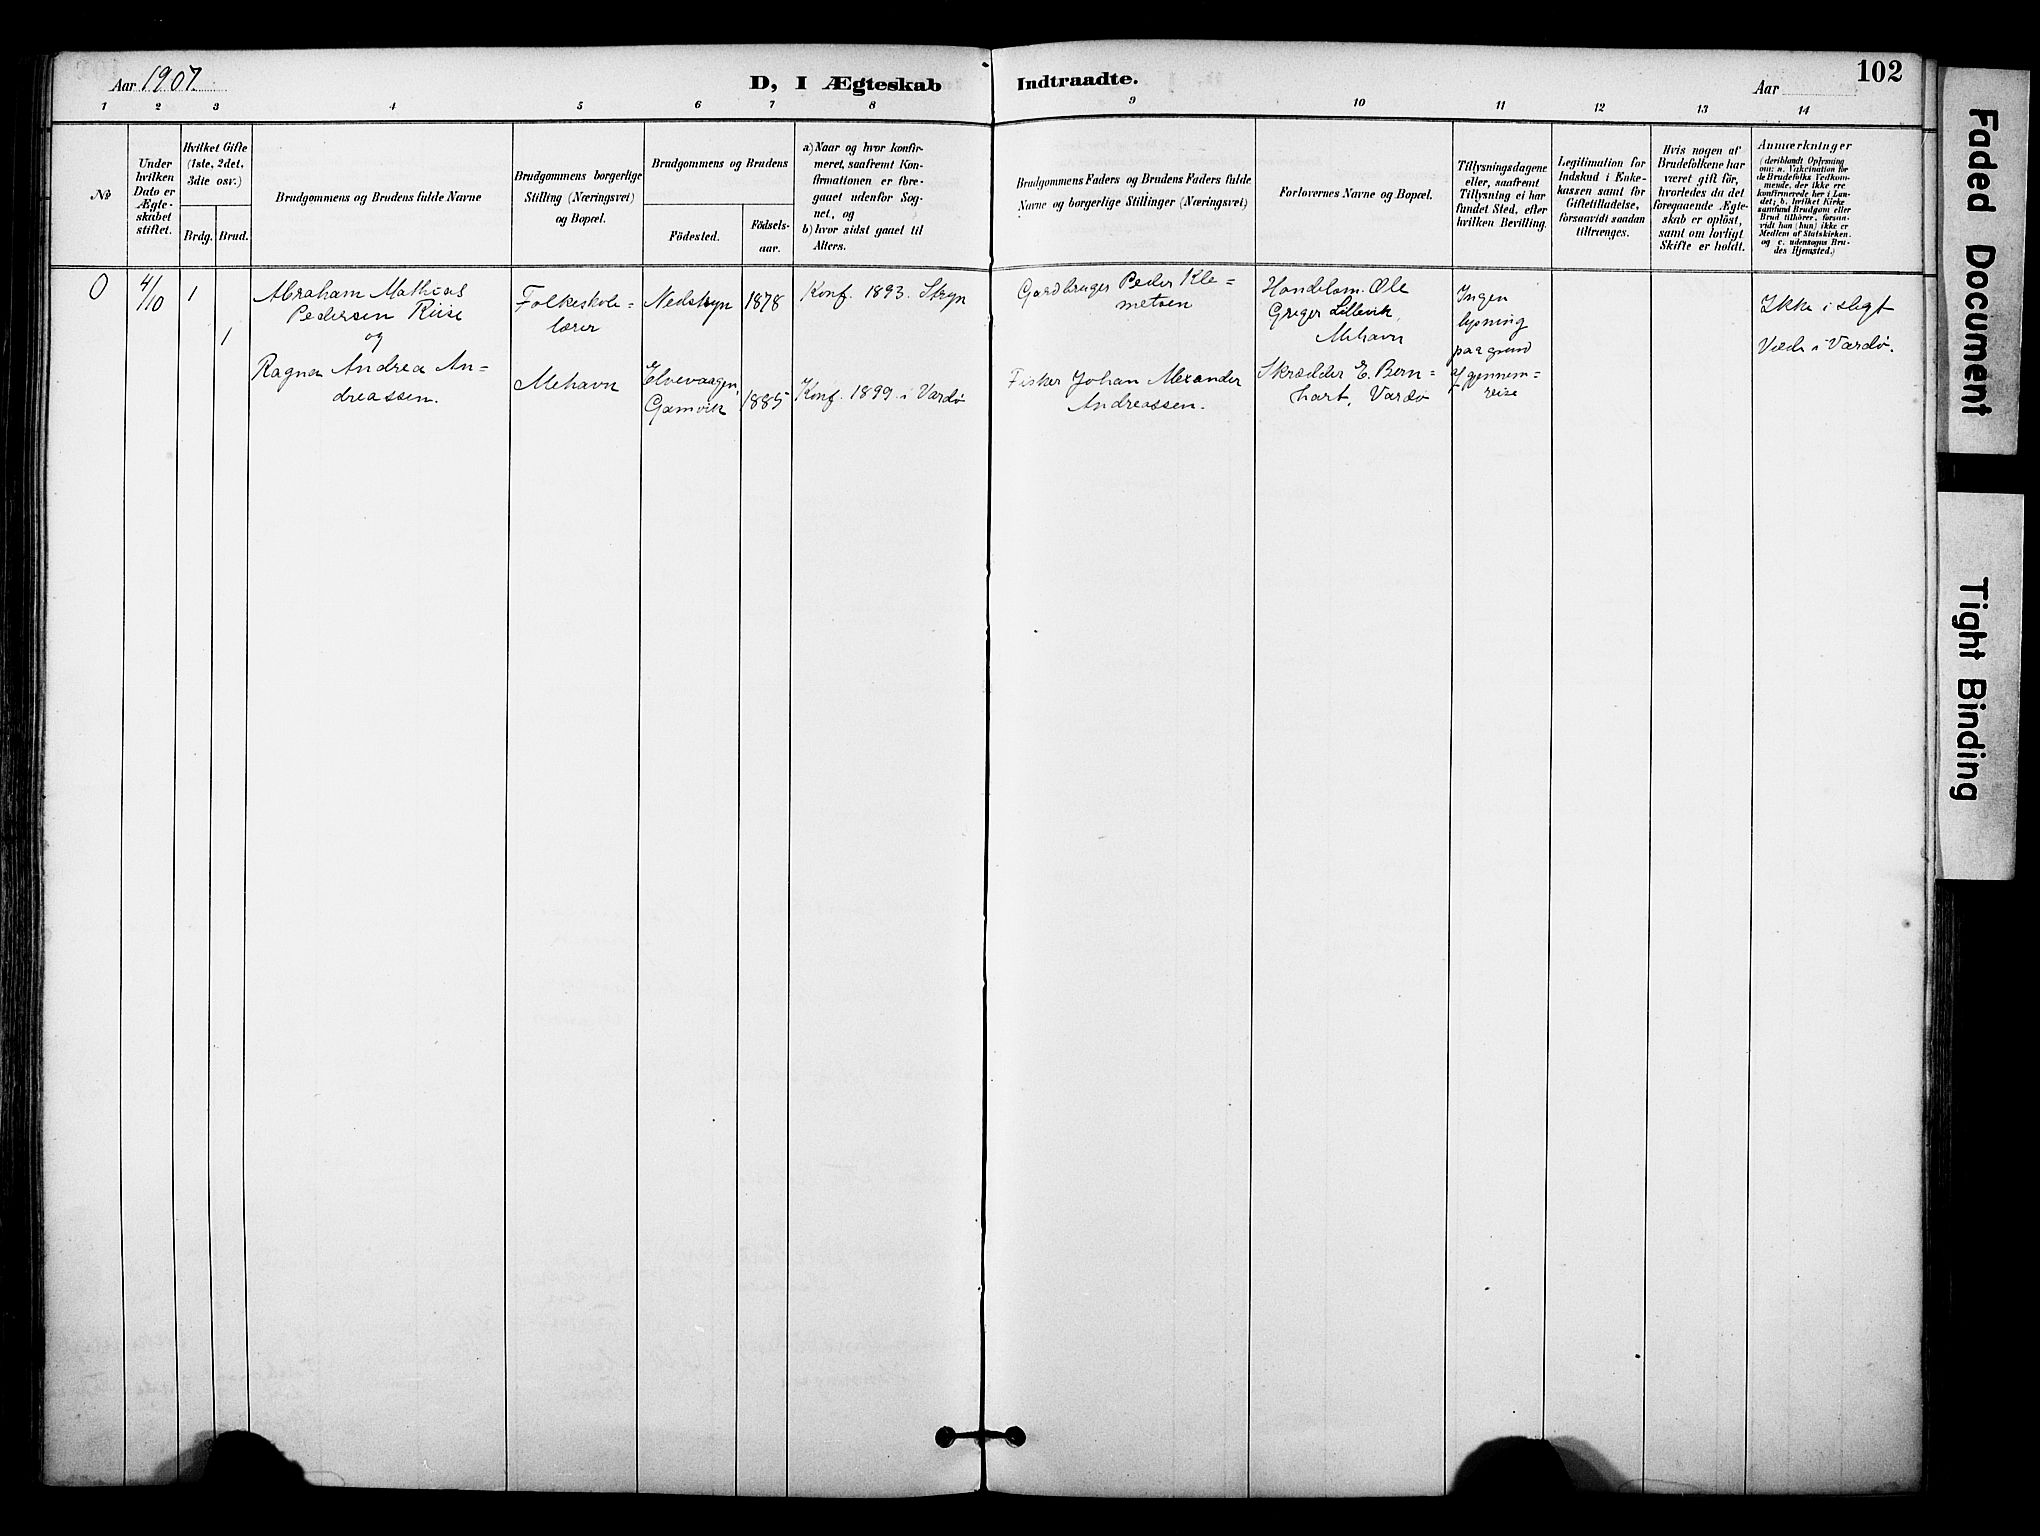 Aar 1907.
D, I Ægteskab Indtraadte.
Aar
102
1 2 3 4 5 6 7 8 9 10 11 12 13 14
No
Under
hvilken
Dato er
Ægte-
skabet
stiftet.
Hvilket Gifte
(1ste, 2det,
3die osv.)
Brdg. Brud.
Brudgommens og Brudens fulde Navne
Brudgommens borgerlige
Stilling (Næringsvei)
og Bopæl.
Brudgommens og Brudens
Födested.
Födsels-
aar.
a) Naar og hvor konfir-
meret, saafremt Kon-
firmationen er fore-
gaaet udenfor Sog-
net, og
b) hvor sidst gaaet til
Alters.
Brudgommens Faders og Brudens Faders fulde
Navne og borgerlige Stillinger (Næringsvei)
Forlovernes Navne og Bopæl.
Tillysningsdagene
eller, saafremt
Tillysning ei har
fundet Sted, efter
hvilken Bevilling.
Legitimation for
Indskud i Enke-
kassen samt for
Giftetilladelse,
forsaavidt saadan
tiltrænges.
Hvis nogen af
Brudefolkene har
været gift för,
hvorledes da det
foregaaende Ægte-
skab er oplöst,
samt om lovligt
Skifte er holdt.
Anmærkninger
(deriblandt Oplysning
om: a. Vakcination for
de Brudefolks Vedkom-
mende, der ikke ere
konfirmerede her i Lan-
det; b. hvilket Kirke
samfund Brudgom eller
Brud tilhörer, forsaa-
vidt han (hun) ikke er
Medlem af Statskirken.
og c. udensogns Bru-
des Hjemsted.)
0
4/10
1
1
Abraham Mathias
Pedersen Riise
og
Ragna Andrea An-
dreassen.
Folkeskole-
lærer
Mehavn
Nedstryn
Elvevaagen,
Gamvik
1878
1885
Konf. 1893. Stryn
Konf. 1899 i Vardø
Gardbruger Peder Kle-
metsen
Fisker Johan Alexander
Andreassen.
Handelsm. Ole
Greger Lillevik,
Mehavn
Skrædder E. Bern-
hart, Vardø
Ingen
lysning
paa grund
af gjennem-
reise
Ikke i slegt
Viede i Vardø.
Faded Document
Tight Binding